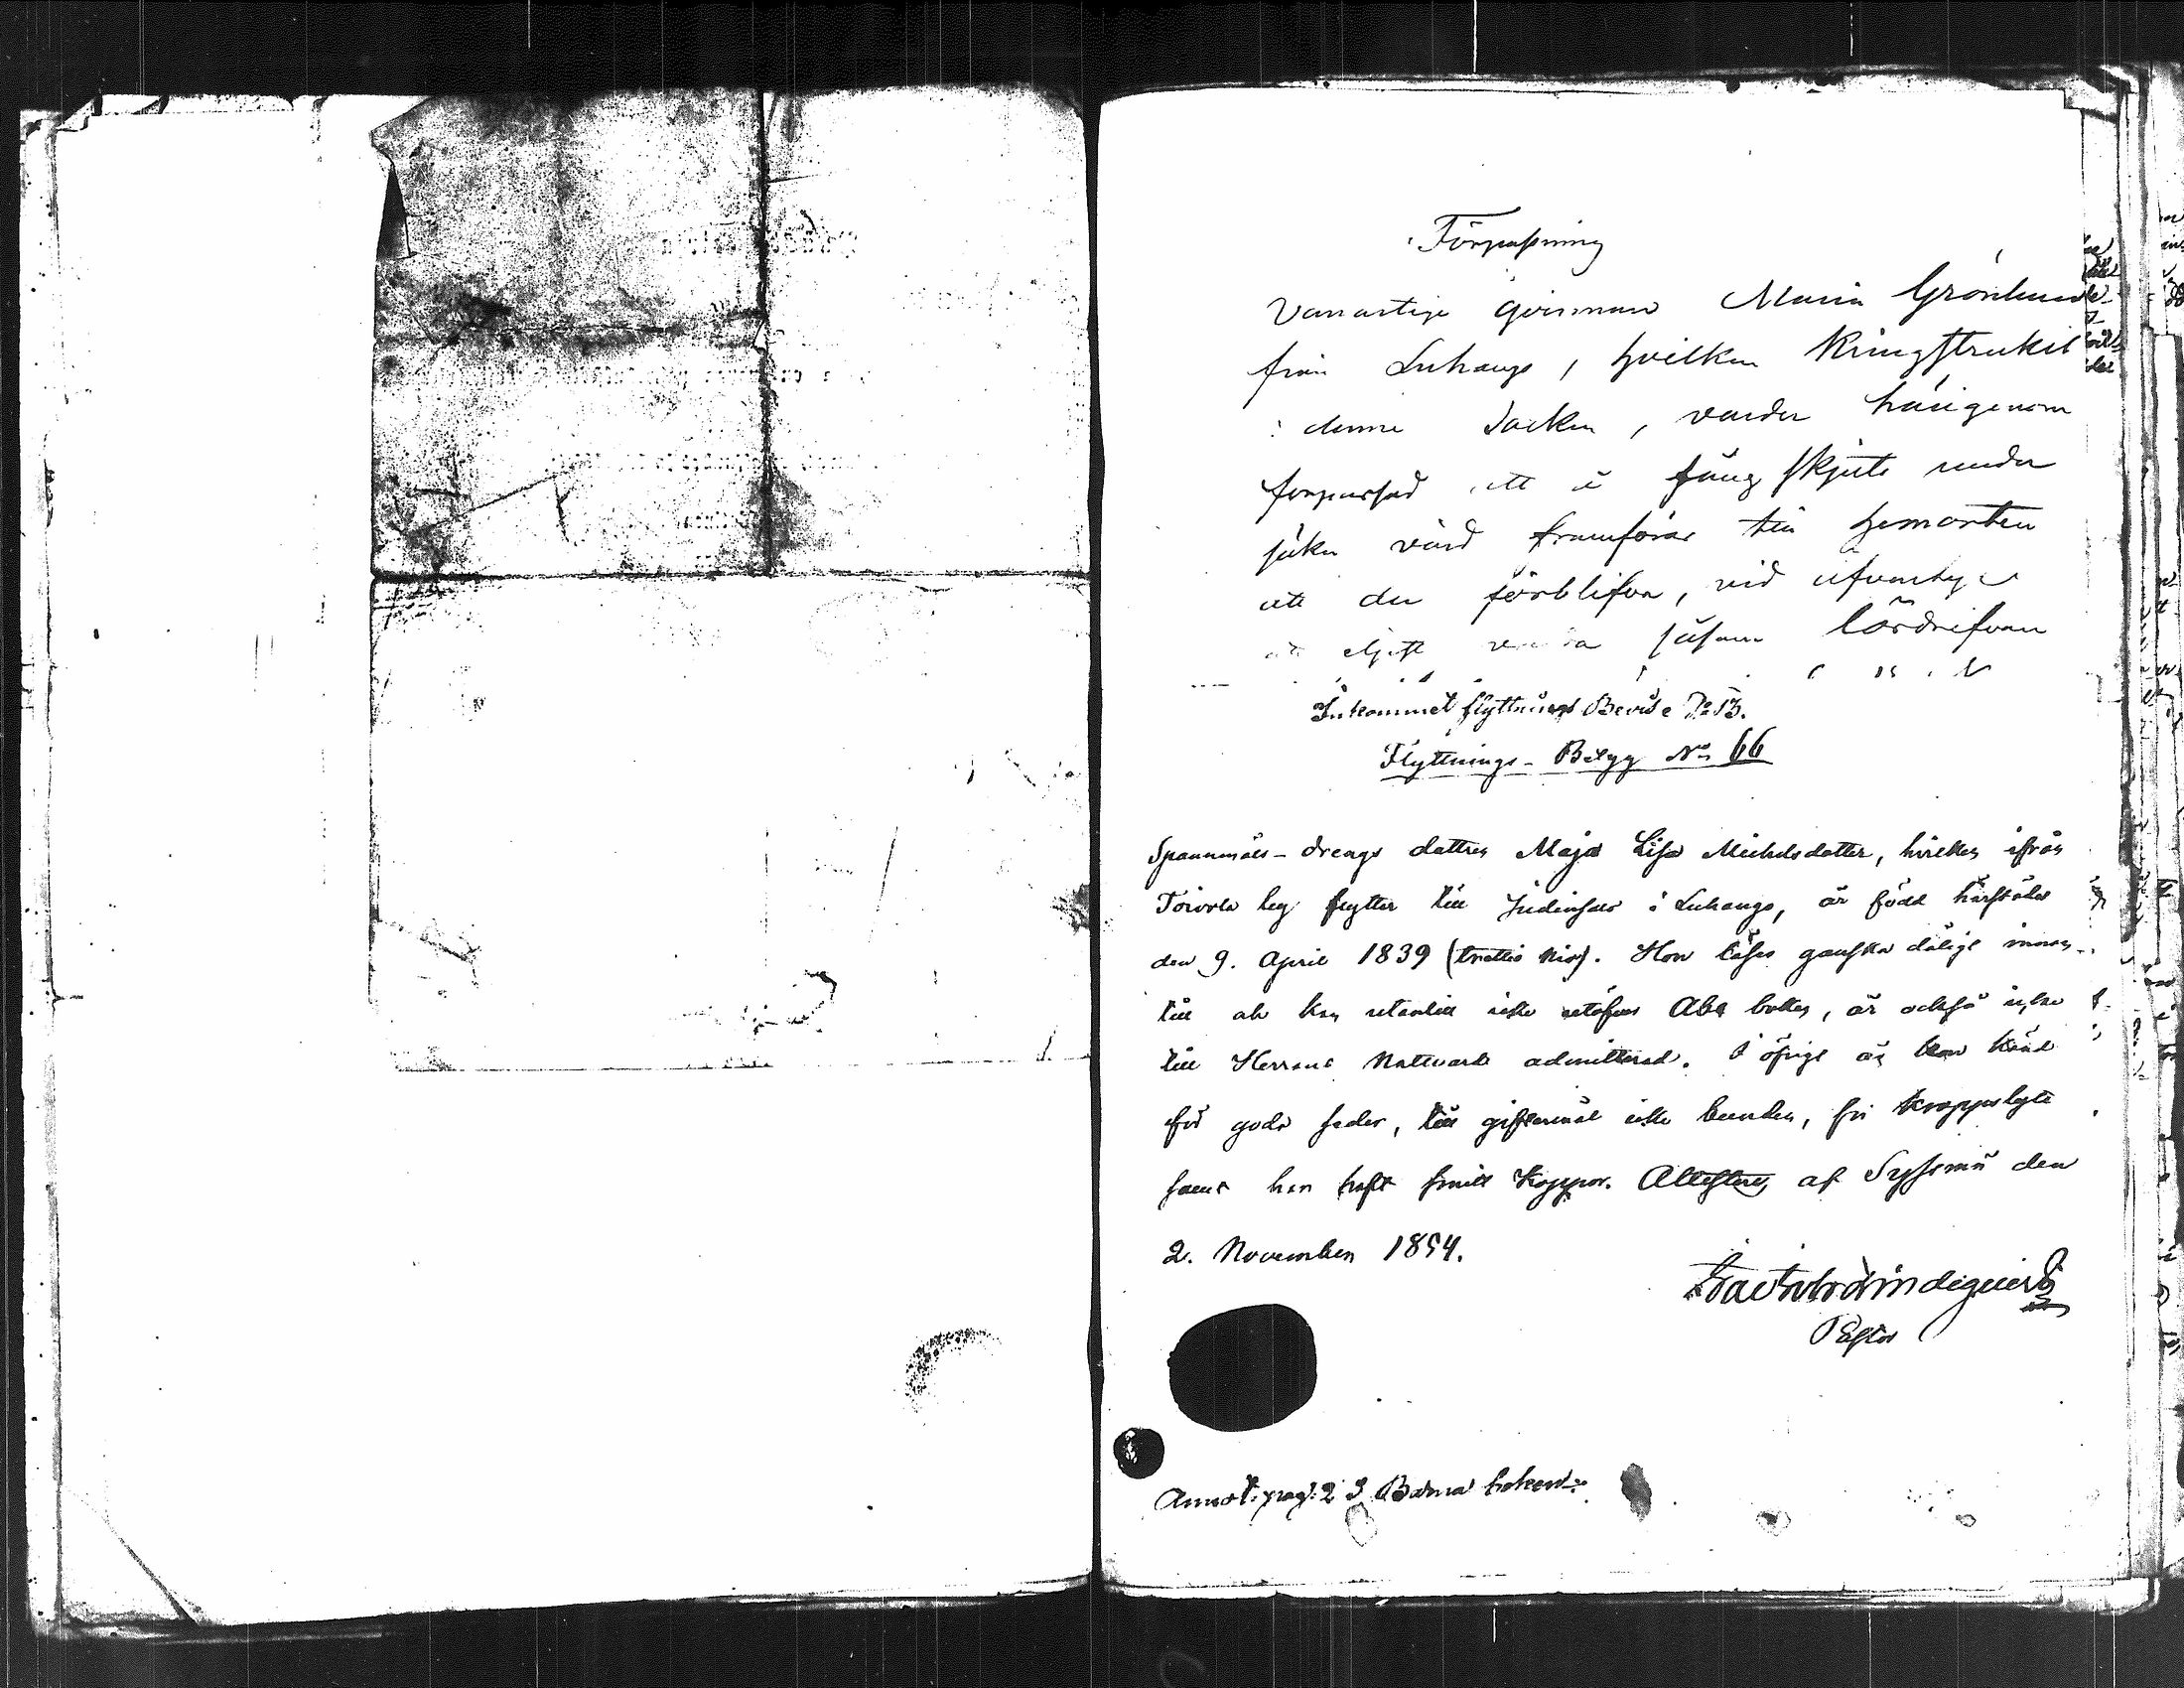 Förpassning
Vanartige qvinnan Maria Grönlund
från Luhango, hvilken kringstrukit
i denne Socken, varder härigenom
förpassad att å fång skjuts under
säker vård framföras till hemorten
att der förblifva, vid äfventyr
att eljest varda såsom lösdrifvare
Inkommet flyttnings Bevis e No 13.
Flyttnings-Bilyg No 66
Spannmåls-drengs dottren Maja Lisa Michelsdotter, hvilken ifrån
Toivola by flytter till Judinsalo i Luhango, är född härstädes
den 9. April 1839 (trettio nio). Hon läser ganska dåligt innan-
till och kan utantill icke utöfver Abc boken, är också icke
till Herrans Nattvard admitterad. I öfrigt är hon känd
för goda seder, till giftermål icke bunden, fri kroppslyte
samt har haft små Koppor. Attesteras af Sysmä den
2. November 1854.
Pastor
Annot. pag. 23 Barna boken